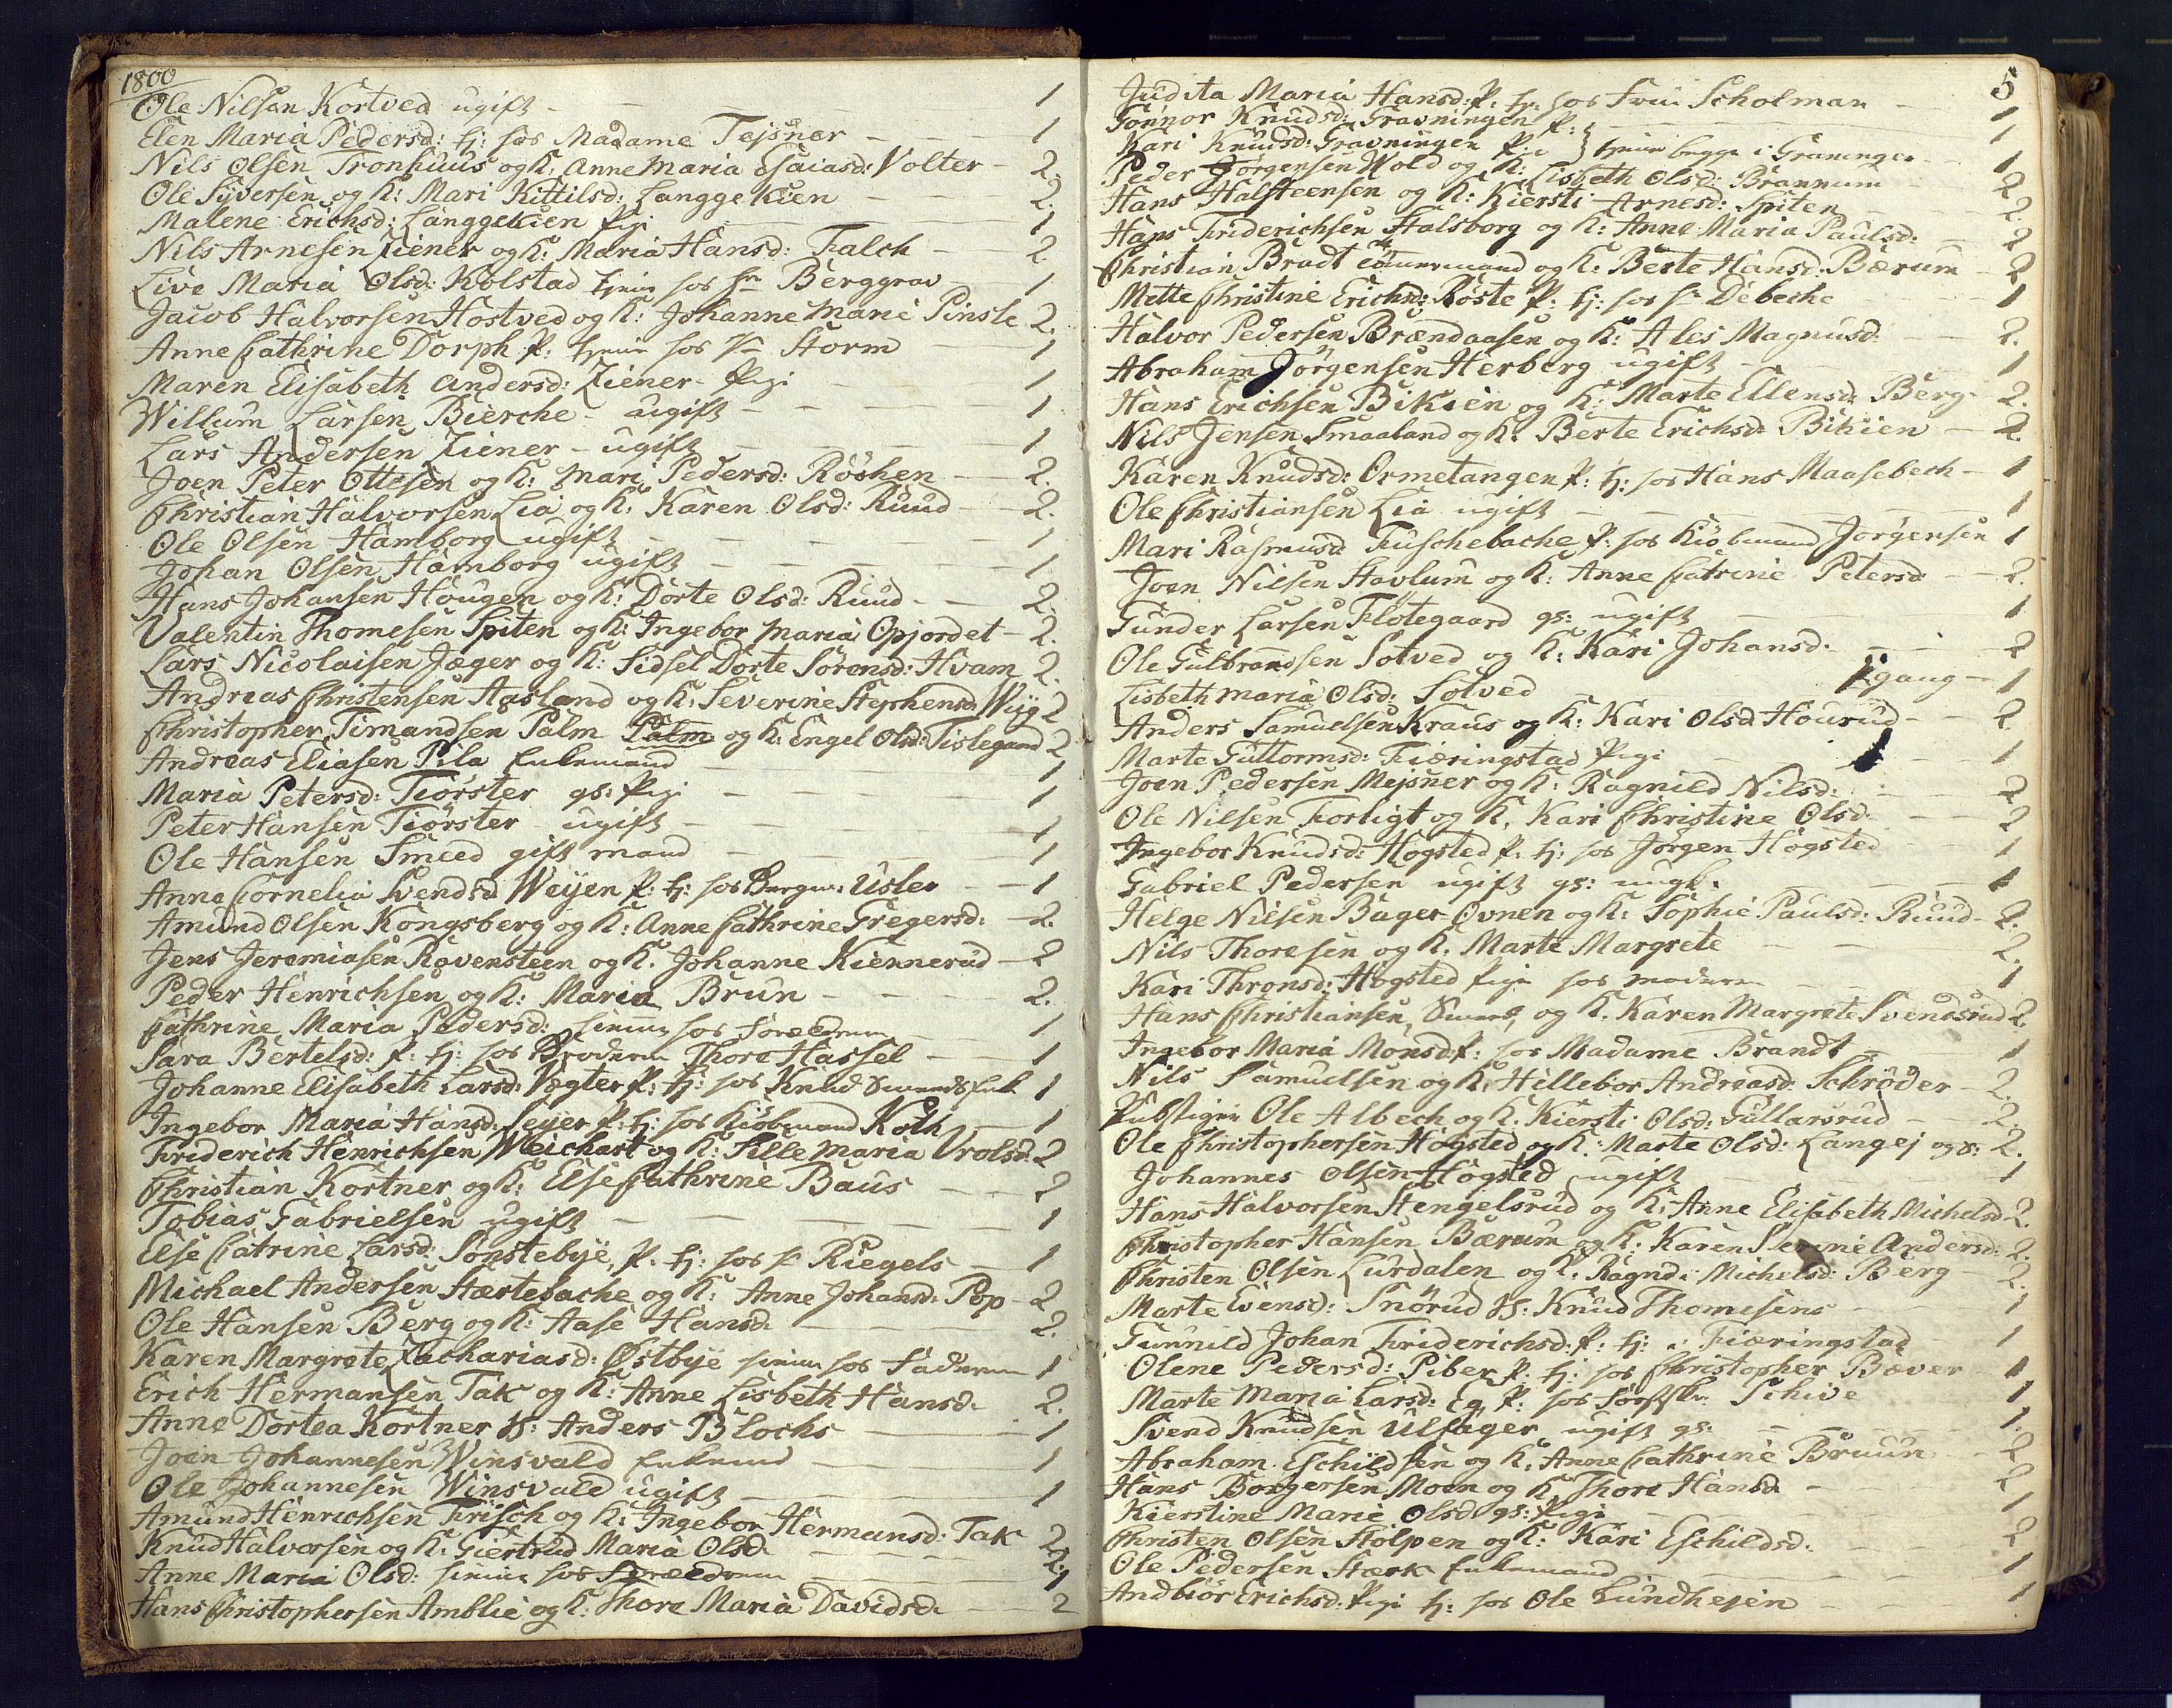 1800
Ole Nilsen Kortved ugift - 1
Elen Maria Pedersd: tj: hos Madame Tejsner - 1
Nils Olsen Tronhuus og K: Anne Maria Esaiasd: Volter - 2.
Ole Syversen og K: Mari Kittilsd: Langgekien - 2.
Malene Erichsd: Langgekien Pige - 1
Nils Arnesen Ziener og K: Maria Hansd: Falck - 2.
Live Maria Olsd: Kolstad hos Hr Berggrav - 1
Jacob Halvorsen Hostved og K: Johanne Marie Pinsle 2.
Anne Cathrine Dorph P: hos Hr Storm - 1
Maren Elisabeth Andersd: Ziener - Pige - 1
Willum Larsen Bierche - ugift - 1
Lars Andersen Ziener - ugift - 1
Joen Peter Ottesen og K: Mari Pedersd: Röshen - 2.
Christian Halvorsen Lia og K: Karen Olsd: Ruud - 2.
Ole Olsen Hamborg ugift - 1
Johan Olsen Hamborg ugift - 1
Hans Johansen Hougen og K: Dorte Olsd: Ruud - 2.
Valentin Thomesen Spiten og K: Ingebor Maria Opjordet - 2.
Lars Nicolaisen Jæger og K: Sidsel Dorte Sorensd: Hvam 2.
Andreas Christensen Aasland og K: Severine Stephensd: Wiig 2
Christopher Timandsen Palm Palm og K: Engel Olsd: Tislegaard 2
Andreas Eliasen Pila Enkemand - 1
Maria Petersd: Tiörster gs: Pige - 1
Peter Hansen Tiörster - ugift - 1
Ole Hansen Smeed gift mand - 1
Anne Cornelia Svendsd: Weyen P: tj: hos Bergm: Usler - 1
Amund Olsen Kongsberg og K: Anne Cathrine Gregersd: - 2.
Jens Jeremiasen Ravensteen og K: Johanne Kiennerud - 2
Peder Henrichsen og K: Maria Brun - 2.
Cathrine Maria Pedersd: hiemme hos Forældrene 1
Sara Bertelsd: P: tj: hos Broderen Thore Hassel - 1
Johanne Elisabeth Larsd: Vogter P: tj: hos Knud 1
Ingebor Maria Hansd: Seyer P: tj: hos Kiöbmand Koth - 1
Friderich Henrichsen Weichart og K: Sille Maria Vrolsd: 2
Christian Kortner og K: Else Cathrine Baus - 2
Tobias Gabrielsen ugift - 1
Else Catrine Larsd: Sonstebye, P: tj: hos Hr Riegels - 1
Michael Andersen Hærtebache og K: Anne Johansd: Pop - 2
Ole Hansen Berg og K: Aase Hansd: - 2.
Karen Margrete Zachariasd: Østbye hiemme hos Faderen 1
Erich Hermansen Tak og K: Anne Lisbeth Hansd: 2.
Anne Dortea Kortner H: Anders Blochs - 1
Joen Johannesen Winsvald Enkemd - 1
Ole Johannesen Winsvald ugift - 1
Amund Henrichsen Frisch og K: Ingebor Hermansd: Tak 2
Knud Halvorsen og K: Giertrud Maria Olsd: - 2.
Anne Maria Olsd: hiemme hos Forældrene - 1
Hans Christophersen Amblie og K: Thore Maria Davidsd: - 2
5
Judita Maria Hansd: P: tj: hos Frue Scholman - 1
Gonnor Knudsd: Gravningen P: - 1
Kari Knudsd: Gravningen Pige } begge i Graningen - 1
Peder Jörgensen Wold og K: Lisbeth Olsd: Brannum - 2
Hans Halsteensen og K: Kiersti Arnesd: Spiten 2.
Hans Friderichsen Halsborg og K: Anne Maria Paulsd: - 2
Christian Bradt og K: Berte Hansd: Bærum - 2
Mette Christine Erichsd: Röste P: tj: hos Hr Debeche - 1
Halvor Pedersen Brændaasen og K: Ales Magnusd: - 2.
Abraham Jörgensen Herberg ugift - 1
Hans Erichsen Bikien og K: Marte Ellensd: Berg - 2.
Nils Jensen Smaaland og K: Berte Erichsd: Bikien - 2.
Karen Knudsd: Ormetangen P: tj: hos Hans Maasebech - 1
Ole Christiansen Lia ugift - 1
Mari Rasmusd: Fuschebache P: hos Kiöbmand Jorgensen 1
Joen Nilsen Stavlum og K: Anne Catrine Petersd: - 2.
Gunder Larsen Flotegaard gs: ugift - 1
Ole Gulbrandsen Sotved og K: Kari Johansd: - 2
Lisbeth Maria Olsd: Solved gang - 1
Anders Samuelsen Kraus og K: Kari Olsd: Hourud - 2.
Marte Guttormsd: Fiæringstad Pige - 1
Joen Pedersen Mejsner og K: Ragnild Nilsd: - 2
Ole Nilsen Forligt og K: Kari Christine Olsd: - 2
Ingebor Knudsd: Hogsted P: tj: hos Jörgen Hogsted - 1
Gabriel Pedersen ugift gs: ungk: - 1
Helge Nilsen Bager Ovnen og K: Sophie Paulsd: Ruud - 2.
Nils Thoresen og K: Marte Margrete - 2.
Kari Thronsd: Hogsted Pige hos moderen - 1
Hans Christiansen og K: Karen Margrete Svendsrud 2.
Ingebor Maria Monsd: P: hos Madame Brandt - 1
Nils Samuelsen og K: Hillebor Andreasd: Schröder - 2.
Ole Albech og K: Kiersti Olsd: Gullarsrud - 2.
Ole Christophersen Hogsted og K: Marte Olsd: Langej og s: 2.
Johannes Olsen Hogsted ugift - 1
Hans Halvorsen Stengelsrud og K: Anne Elisabeth Michelsd: 2.
Christopher Hansen Bærum og K: Karen Serine Andersd: 2.
Christen Olsen Lurdalen og K: Ragndi Michelsd: Berg - 2.
Marte Evensd: Snörud H: Knud Thomesens - 1
Gunnild Johan Friderichsd: P: tj: i Fiæringstad - 1
Olene Pedersd: Piber P: tj: hos Christopher Bæver 1
Marte Maria Larsd: Eg P: hos Schive 1
Svend Knudsen Ulsager ugift gs: - 1.
Abraham Eschildsen og K: Anne Cathrine Bruun - 2
Hans Borgersen Moen og K: Thore Hansd: - 2
Kierstine Marie Olsd: gs: Pige - 1
Christen Olsen Stolpen og K: Kari Eschildsd: - 2
Ole Pedersen Stærk Enkemand - 1
Andbior Erichsd: Pige tj: hos Ole Lundhejen - 1